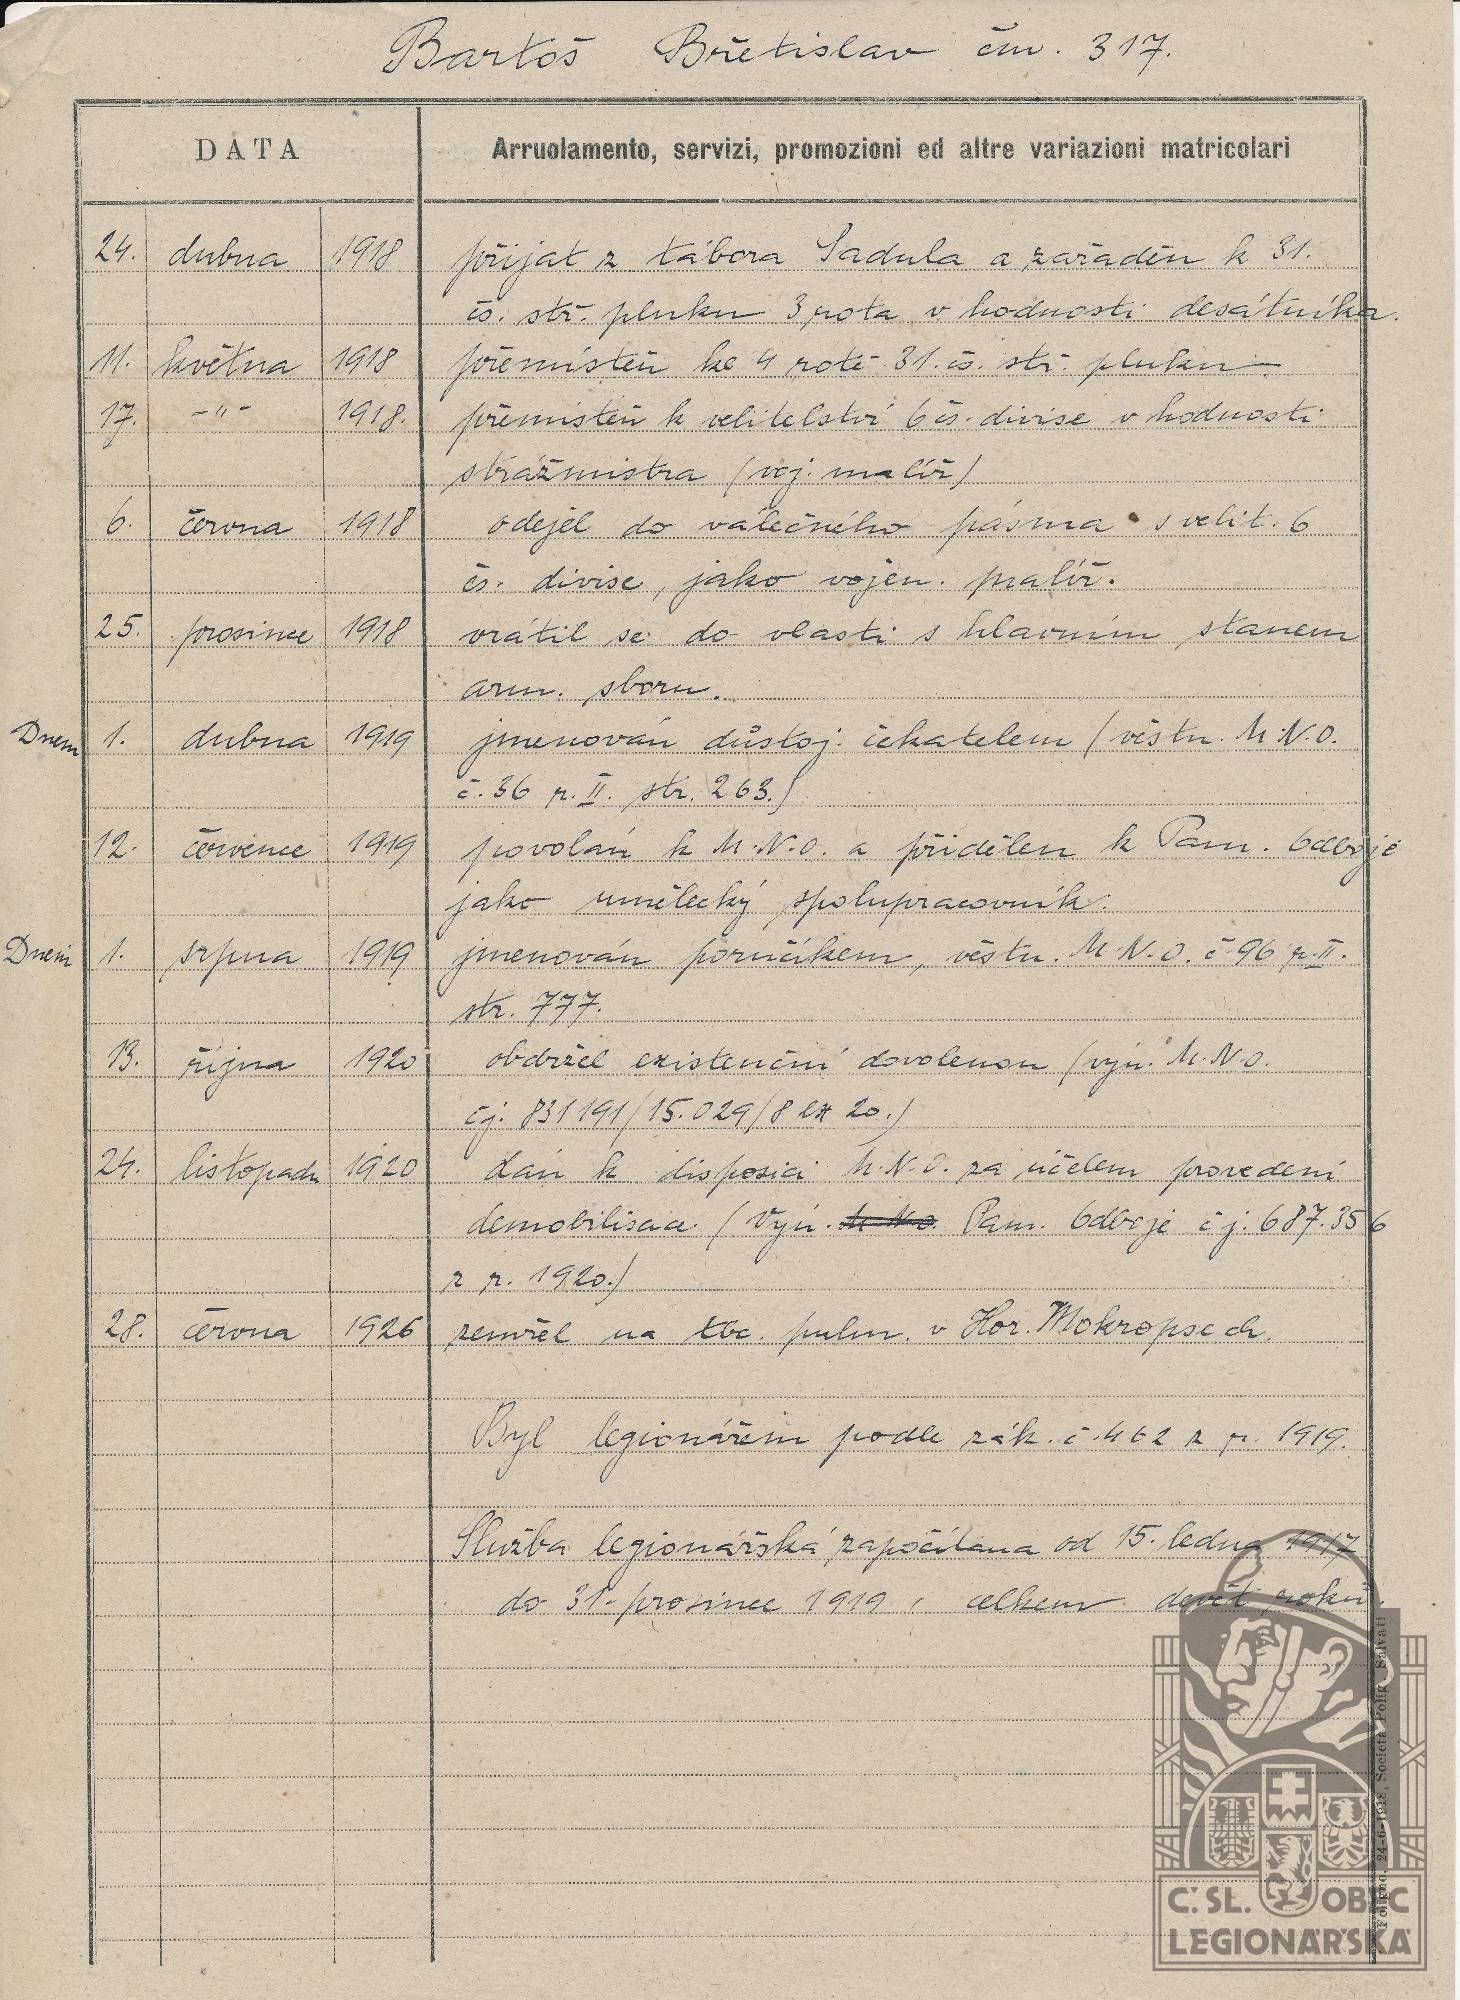 Bartoš Břetislav čm. 317.
DATA
Arruolamento, servizi, promozioni ed altre variazioni matricolari
24. dubna 1918 přijat z tábora Sadula a zařaděn k 31.
čs. stř. pluku 3 rota v hodnosti desátníka.
11. května 1918 přemístěn ke 4 rotě 31. čs. stř. pluku
17. -"- 1918. přemístěn k velitelství 6 čs. divise v hodnosti
strážmistra (voj. malíř)
6. června 1918 odejel do válečného pásma s velit. 6
čs. divise, jako vojen. malíř.
25. prosince 1918 vrátil se do vlasti s hlavním stanem
arm. sboru.
Dnem 1. dubna 1919 jmenován důstoj. čekatelem (věstn. M.N.O.
č. 36 r. II. str. 263.)
12. července 1919 povolán k M.N.O. a přidělen k Pam. Odboje
jako umělecký spolupracovník.
Dnem 1. srpna 1919 jmenován poručíkem, věstn. M.N.O. č. 96 r. II.
str. 777.
13. října 1920 obdržel existenční dovolenou (výn. M.N.O.
čj. 831191/15.029/8 20.)
24. listopadu 1920 dán k disposici M.N.O. za účelem provedení
demobilisace (Výn. M.N.O. Pam. Odboje čj. 687.356
z r. 1920.)
28. června 1926 zemřel na tbc. pulm. v Hor. Mokropsech.
Byl legionářem podle zák. č. 462 z r. 1919.
Služba legionářská započítana od 15. ledna 1917
do 31. prosince 1919, celkem devět roků.
Foligno, 24-6-1918, Società Polig. Salvati
Č. SL. OBEC
LEGIONÁŘSKÁ